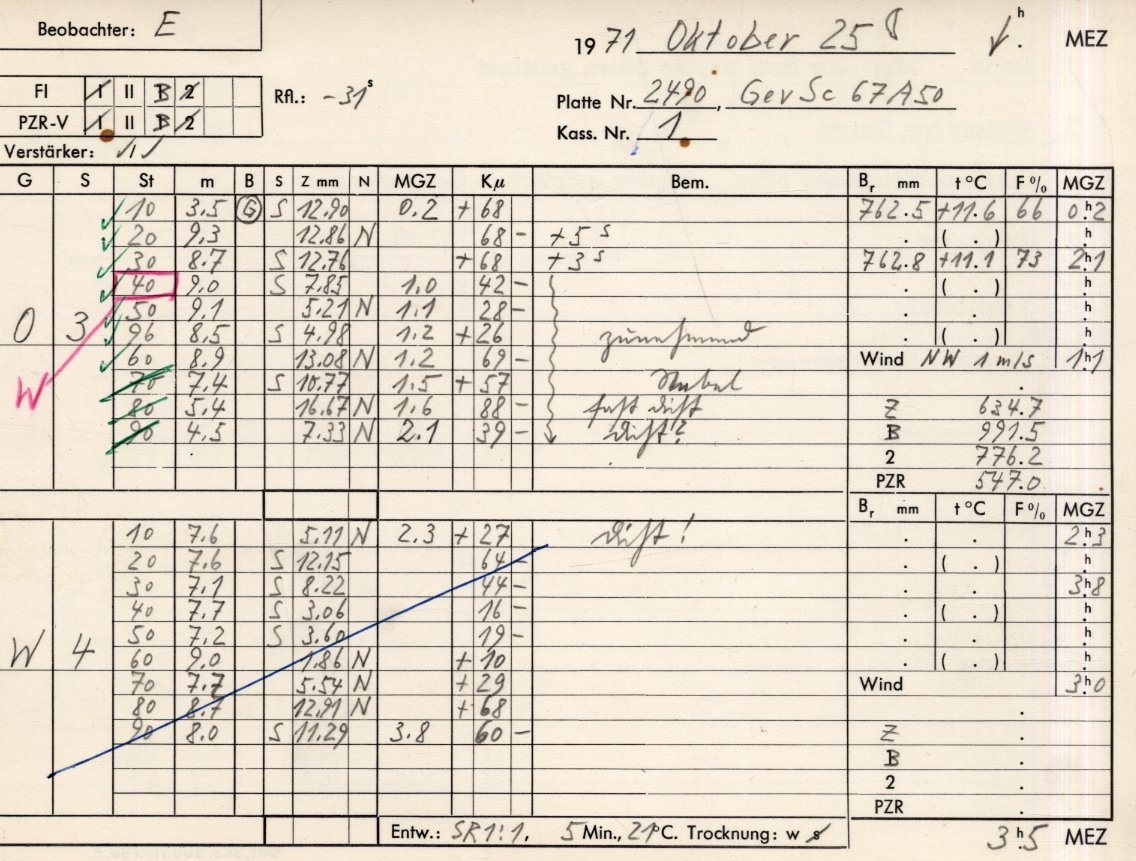 Beobachter: E
1971 Oktober 25 h. MEZ
FI I II B 2
PZR-V I II B 2
RA.: -31 s
Platte Nr. 2490, GevSc 67A50
Kass. Nr. 1
Verstärker:
G S St m B S Z mm N MGZ Kμ Bem. Br mm t °C F % MGZ
10 3.5 G S 12.90 0.2 + 68 762.5 +11.6 66 0h.2
20 9.3 12.86 N 68 - +5 s . ( . ) h.
30 8.7 S 12.76 + 68 +3 s 762.8 +11.1 73 2h.1
40 9.0 S 7.85 1.0 42 - . ( . ) h.
50 9.1 5.21 N 1.1 28 - . . h.
O 3 96 8.5 S 4.98 1.2 + 26 zunehmend . ( . ) h.
60 8.9 13.08 N 1.2 69 - Wind NW 1 m/s 1h.1
W 70 7.4 S 10.77 1.5 + 57 Nebel .
80 5.4 16.67 N 1.6 88 - fast dicht Z 634.7
90 4.5 7.33 N 2.1 39 - dicht? B 991.5
2 776.2
PZR 547.0
Br mm t °C F % MGZ
10 7.6 5.11 N 2.3 + 27 dicht! . . 2h.3
20 7.6 S 12.15 64 - . ( . ) h.
30 7.1 S 8.22 44 - . . 3h.8
40 7.7 S 3.06 16 - . ( . ) h.
50 7.2 S 3.60 19 - . . h.
W 4 60 9.0 1.86 N + 10 . ( . ) h.
70 7.7 5.54 N + 29 Wind 3h.0
80 8.7 12.91 N + 68 .
90 8.0 S 11.29 3.8 60 - Z .
B .
2 .
PZR .
Entw.: SR 1:1, 5 Min., 21°C. Trocknung: w s 3h.5 MEZ